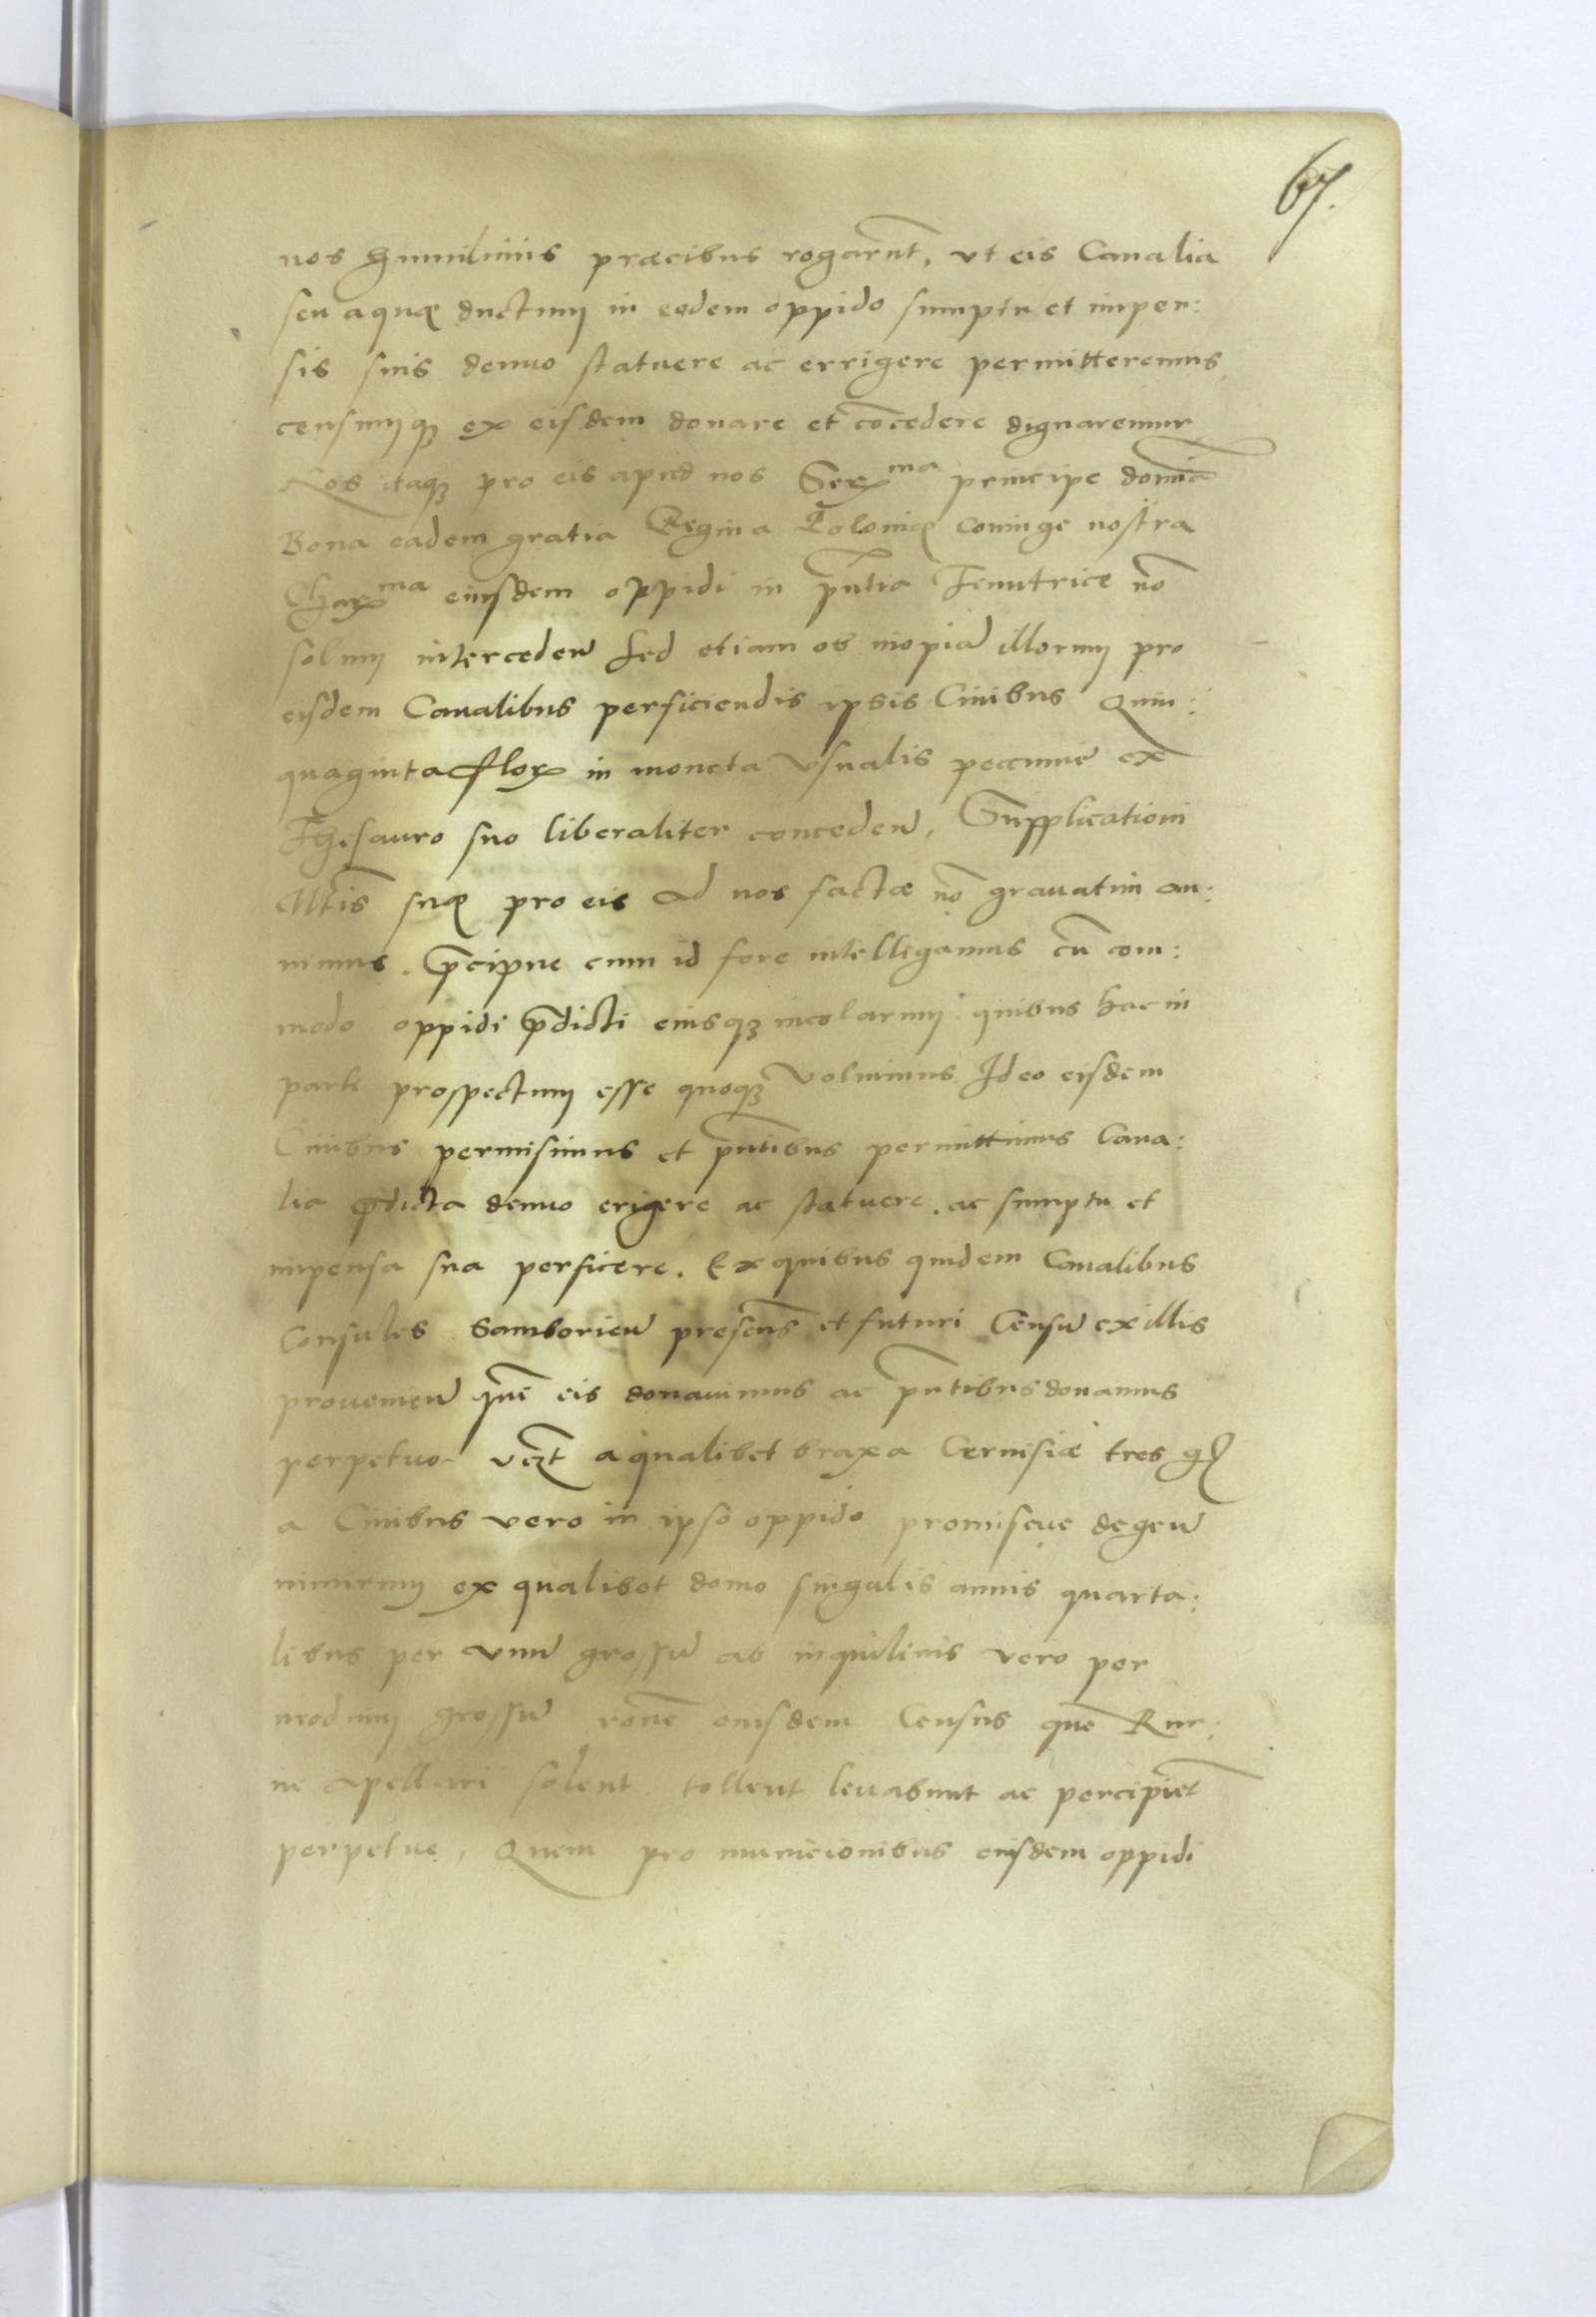 67.
nos humilimis præcibus rogarūt, vt eis Canalia
seu aquæ ductum in eodem oppido sumptu et impen:
sis suis denuo statuere ac errigere permitteremus
censumqꝫ ex eisdem donare et cōcedere dignaremur
Nos itaqꝫ pro eis apud nos Serma principe domīa
Bona eadem gratia Regina Poloniæ coniuge nostra
Charma eiusdem oppidi in pn̄tia Tenutrice nō
solum interceden̄ sed etiam ob inopiā illorum pro
eisdem Canalibus perficiendis ipsis Ciuibus Quin:
quaginta flor in moneta vsualis peccuniæ ex
Thesauro suo liberaliter conceden̄, Supplicationi
Mtīs suæ pro eis ad nos factæ nō grauatim an:
nimus. p̄cipue cum id fore intelligamus cū com:
modo oppidi p̄dicti eiusqꝫ incolarum: quibus hac in
parte prospectum esse quoqꝫ volumus. Ideo eisdem
Ciuibus permisimus et pn̄tibus permittimus Cana:
lia p̄dicta denuo erigere ac statuere. ac sumptu et
impensa sua perficere. Ex quibus quidem Canalibus
Consules Samborien̄ presens̄ et futuri Censū ex illis
prouenien̄ quē eis donauimus ac pn̄tibus donamus
perpetuo vezt̄ a qualibet braxa Ceruisiæ tres gꝭ
a Ciuibus vero in ipso oppido promiscue degen̄
nimirum ex qualibet domo singulis annis quarta:
libus per vnū grossū ab inquilinis vero per
medium grossū ronē eiusdem Census quē Rur:
ne apellari solent. tollent leuabunt ac percipiēt
perpetue, Quem pro municionibus eiusdem oppidi